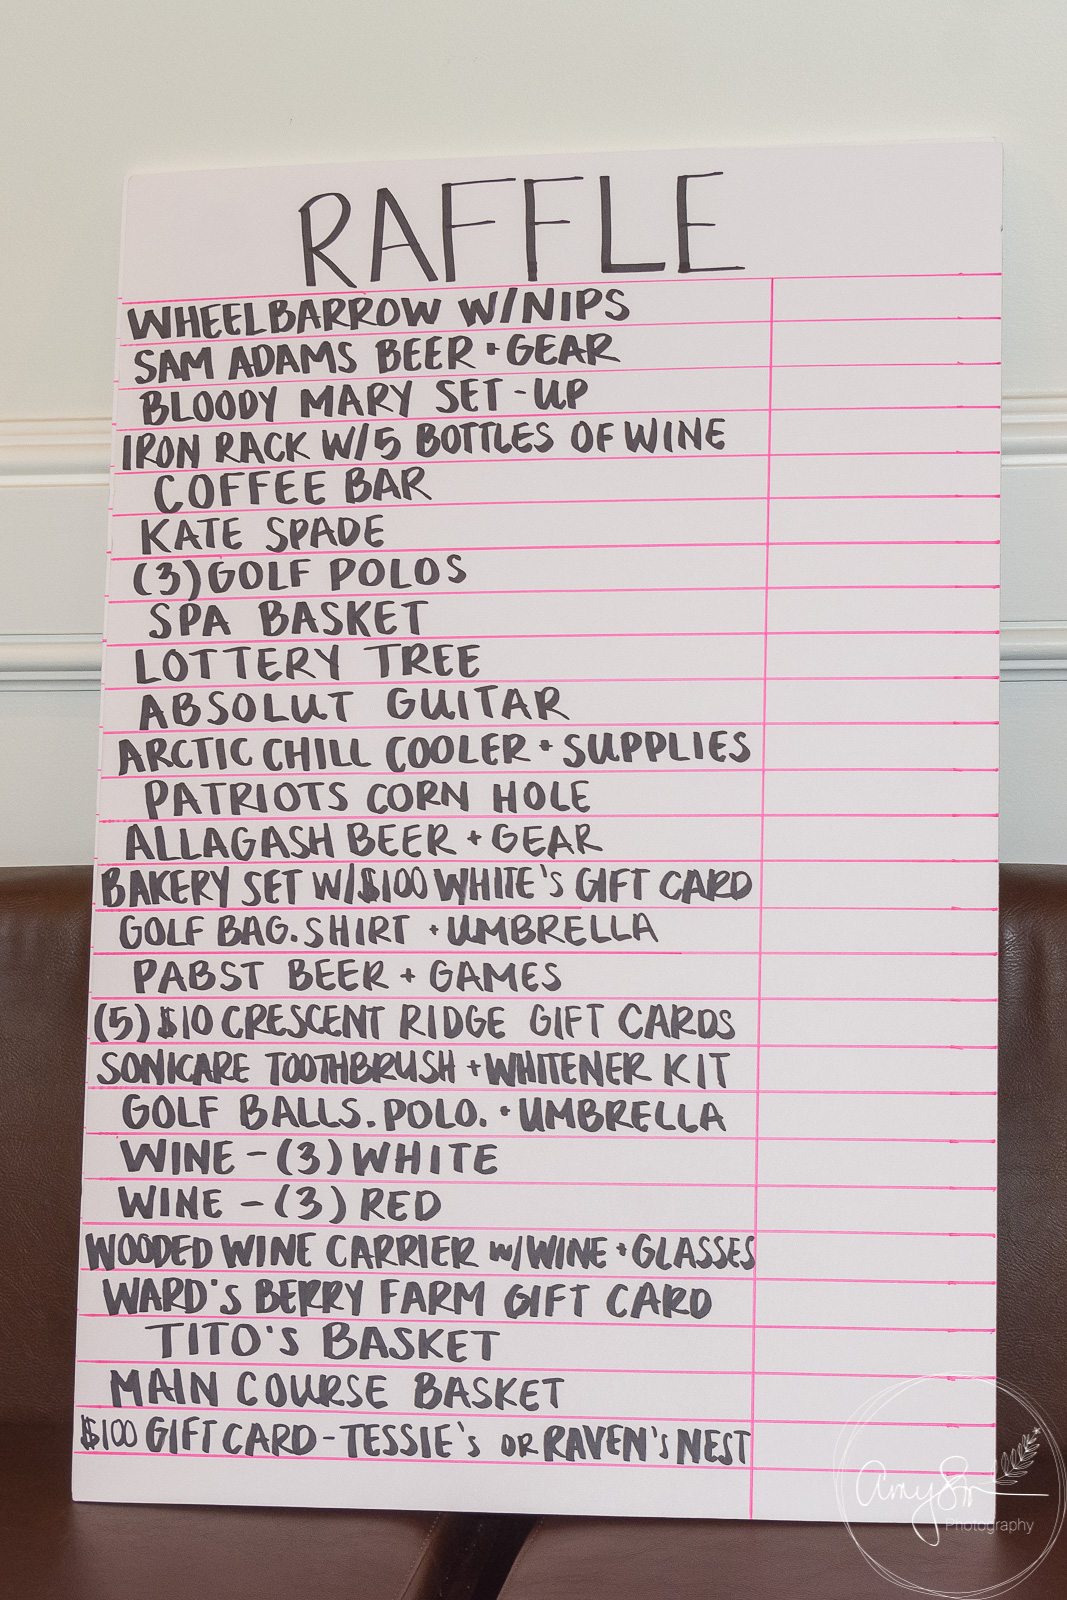 RAFFLE
WHEELBARROW W/NIPS
SAM ADAMS BEER + GEAR
BLOODY MARY SET-UP
IRON RACK W/5 BOTTLES OF WINE
COFFEE BAR
KATE SPADE
(3) GOLF POLOS
SPA BASKET
LOTTERY TREE
ABSOLUT GUITAR
ARCTIC CHILL COOLER + SUPPLIES
PATRIOTS CORN HOLE
ALLAGASH BEER + GEAR
BAKERY SET W/$100 WHITE'S GIFT CARD
GOLF BAG. SHIRT + UMBRELLA
PABST BEER + GAMES
(5) $10 CRESCENT RIDGE GIFT CARDS
SONICARE TOOTHBRUSH + WHITENER KIT
GOLF BALLS. POLO. + UMBRELLA
WINE - (3) WHITE
WINE - (3) RED
WOODED WINE CARRIER w/WINE + GLASSES
WARD'S BERRY FARM GIFT CARD
TITO'S BASKET
MAIN COURSE BASKET
$100 GIFT CARD - TESSIE'S OR RAVEN'S NEST
Amy
Photography